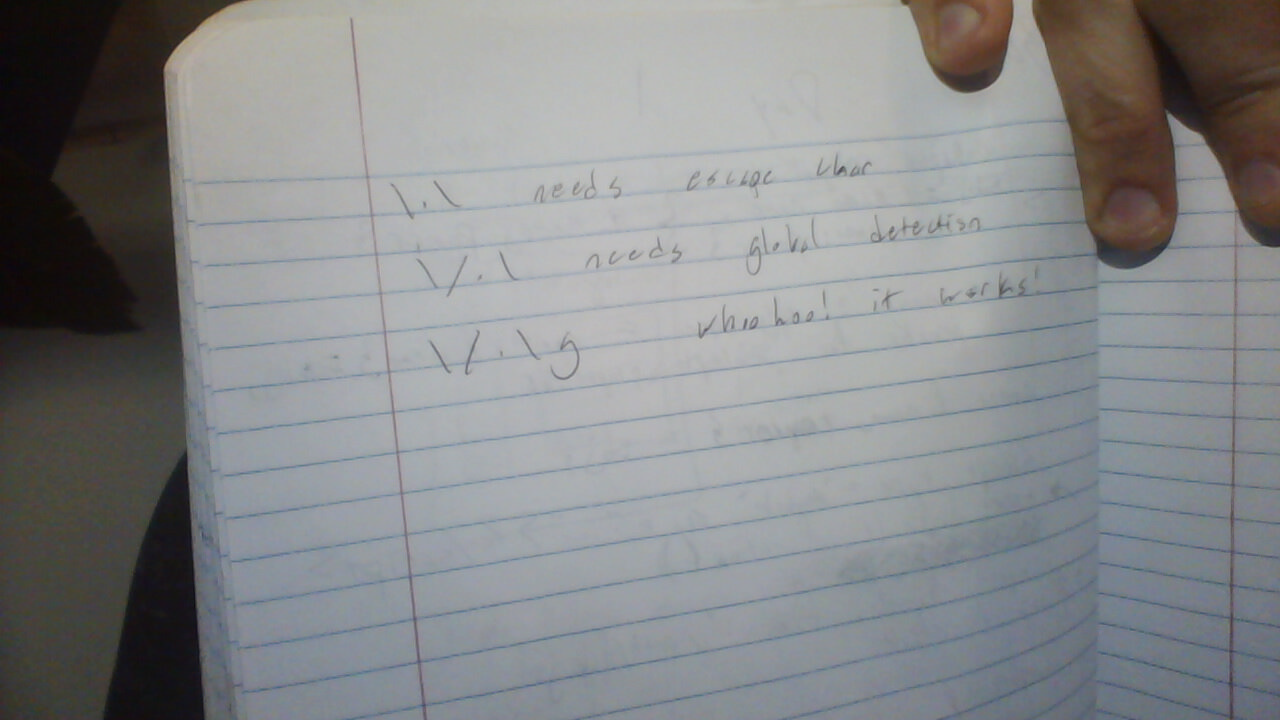 \.\ needs escape char
\/.\ needs global detection
\/.\g whoohoo! it works!